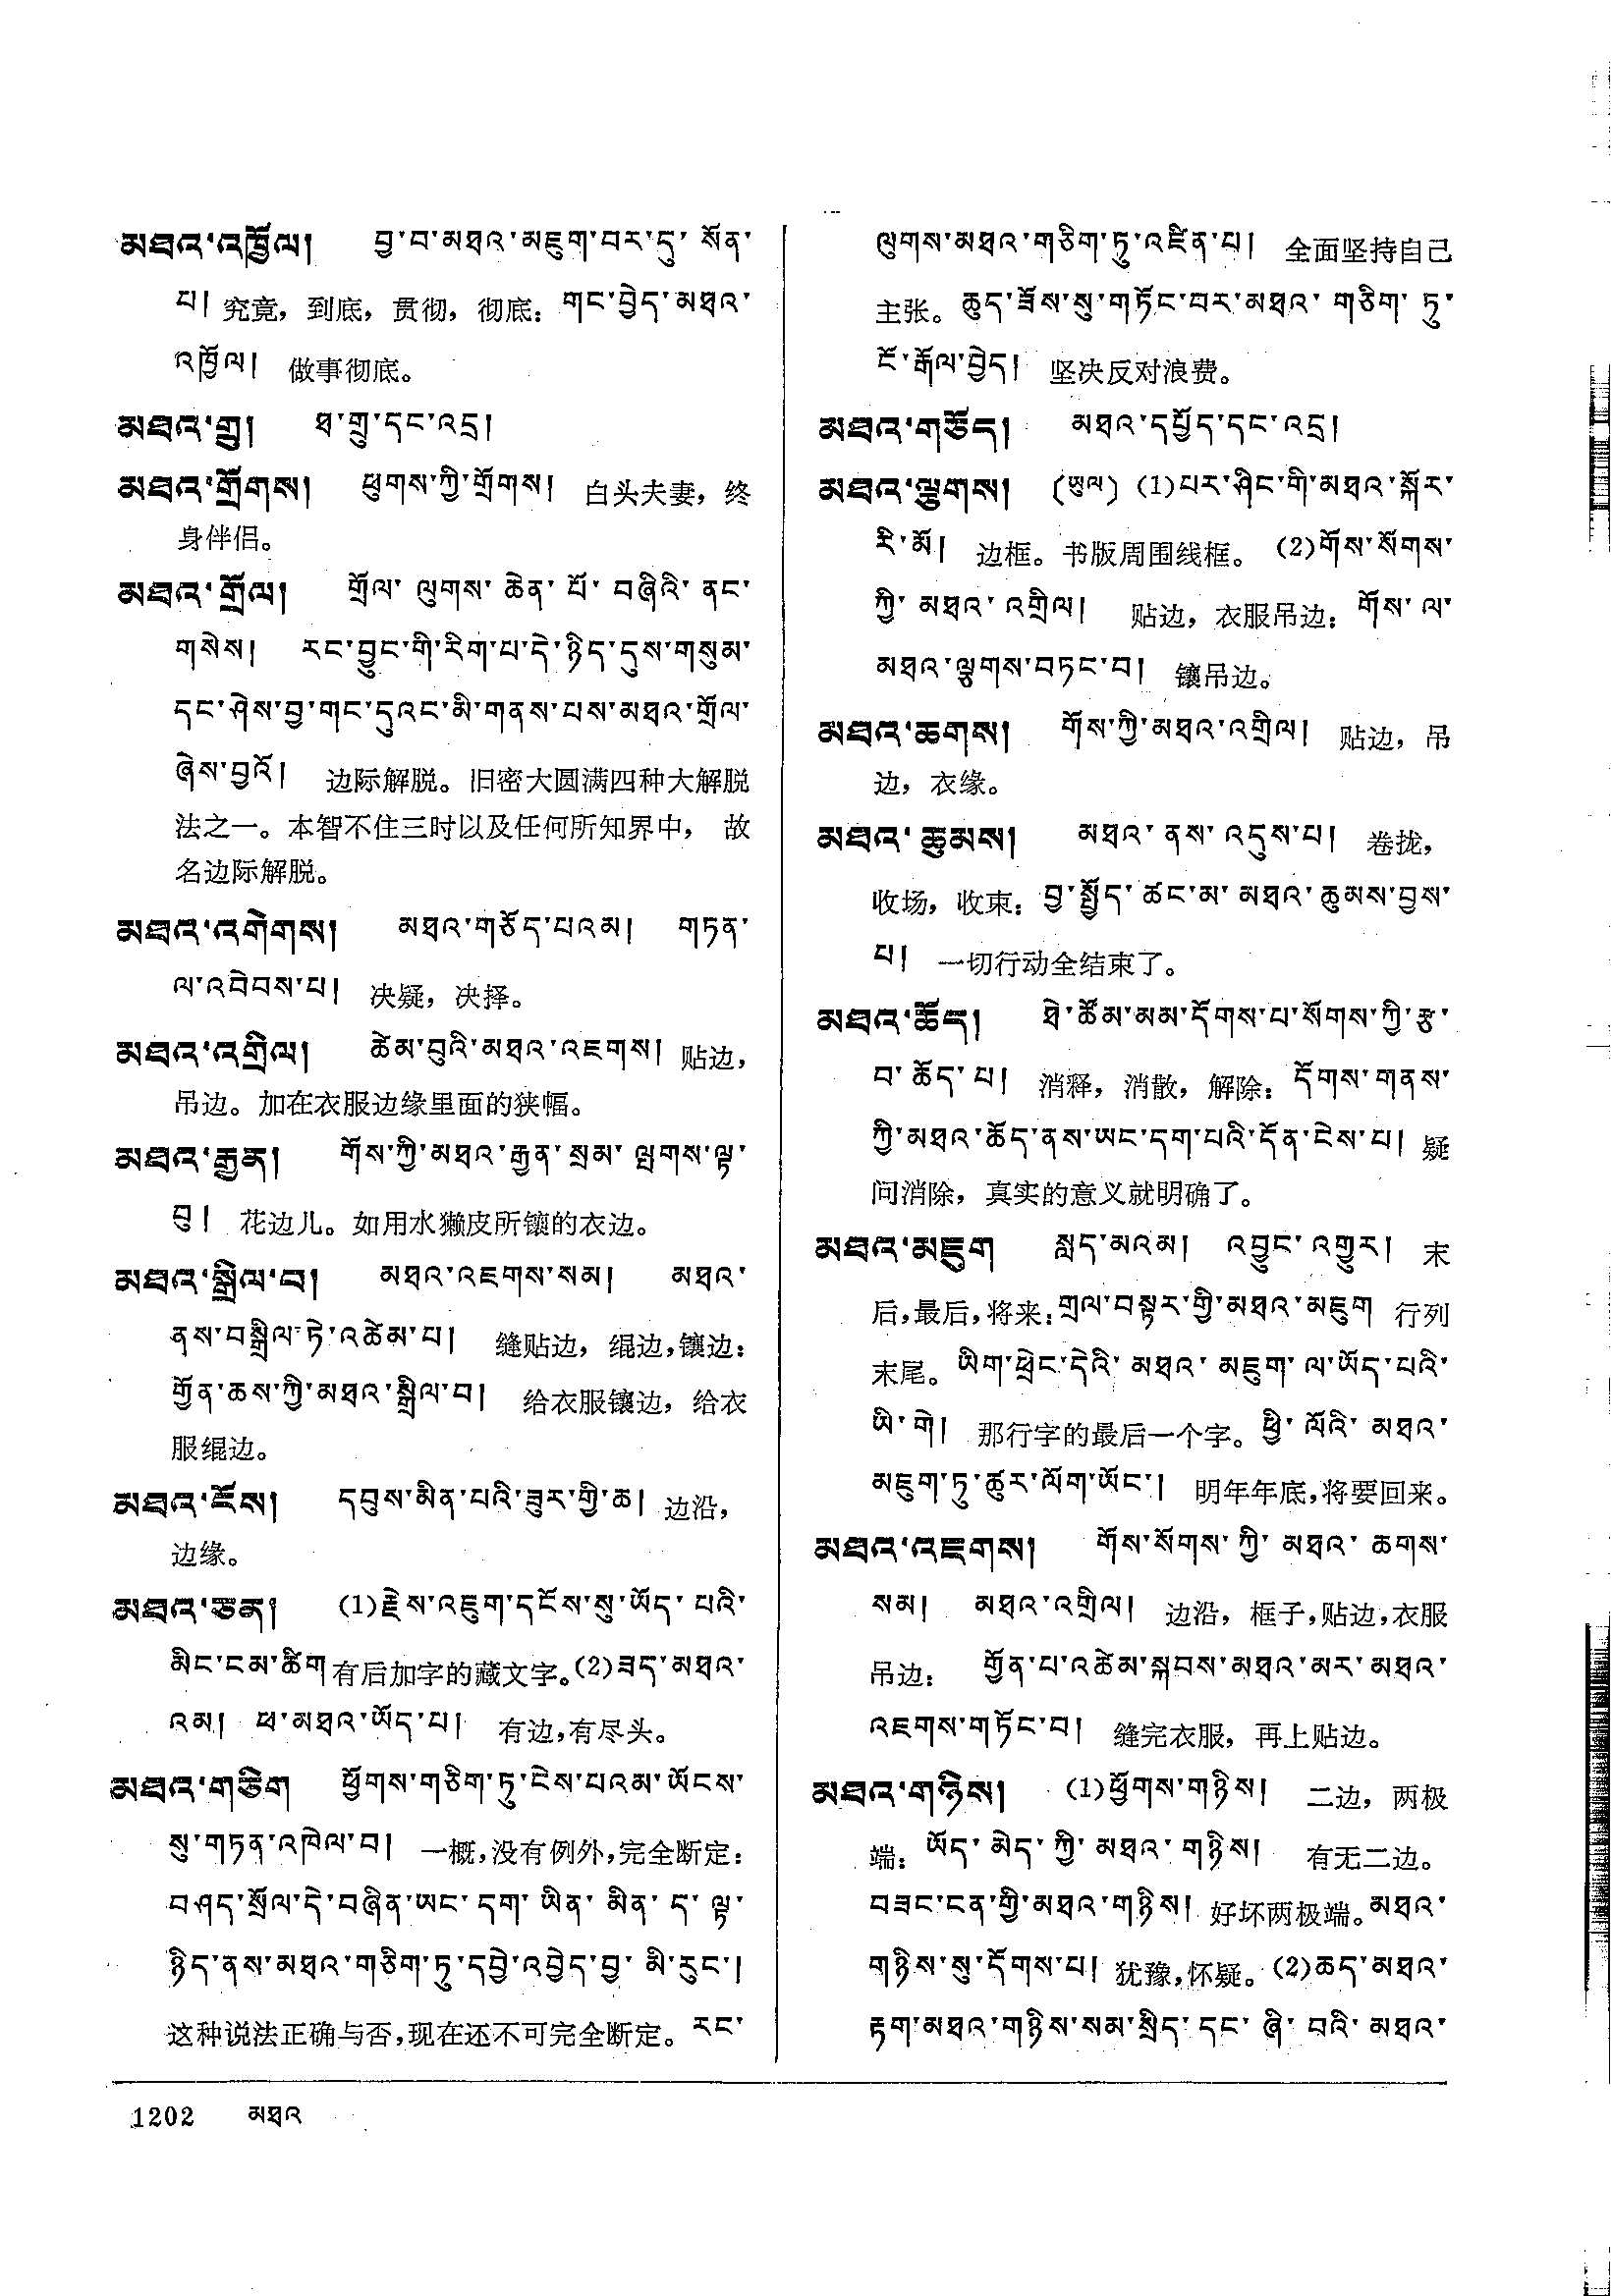 མཐའ་འཁྱོལ། བྱ་བ་མཐའ་མཇུག་བར་དུ་སོན་
པ། 究竟，到底，贯彻，彻底：གང་བྱེད་མཐའ་
འཁྱོལ། 做事彻底。
མཐའ་གྲུ། ཐ་གྲུ་དང་འདྲ།
མཐའ་གྲོགས། ཕུགས་ཀྱི་གྲོགས། 白头夫妻，终
身伴侣。
མཐའ་གྲོལ། གྲོལ་ལུགས་ཆེན་པོ་བཞིའི་ནང་
གསེས། རང་བྱུང་གི་རིག་པ་དེ་ཉིད་དུས་གསུམ་
དང་ཤེས་བྱ་གང་དུའང་མི་གནས་པས་མཐའ་གྲོལ་
ཞེས་བྱའོ། 边际解脱。旧密大圆满四种大解脱
法之一。本智不住三时以及任何所知界中， 故
名边际解脱。
མཐའ་འགེགས། མཐའ་གཅོད་པའམ། གཏན་
ལ་འབེབས་པ། 决疑，决择。
མཐའ་འགྲིལ། ཚེམ་བུའི་མཐའ་འཇགས། 贴边，
吊边。加在衣服边缘里面的狭幅。
མཐའ་རྒྱན། གོས་ཀྱི་མཐའ་རྒྱན་སྲམ་ལྤགས་ལྟ་
བུ། 花边儿。如用水獭皮所镶的衣边。
མཐའ་སྒྲིལ་བ། མཐའ་འཇགས་སམ། མཐའ་
ནས་བསྒྲིལ་ཏེ་འཚེམ་པ། 缝贴边，绲边，镶边：
གྱོན་ཆས་ཀྱི་མཐའ་སྒྲིལ་བ། 给衣服镶边，给衣
服绲边。
མཐའ་ངོས། དབུས་མིན་པའི་ཟུར་གྱི་ཆ། 边沿，
边缘。
མཐའ་ཅན། (1)རྗེས་འཇུག་དངོས་སུ་ཡོད་པའི་
མིང་ངམ་ཚིག 有后加字的藏文字。(2)ཟད་མཐའ་
འམ། ཕ་མཐའ་ཡོད་པ། 有边，有尽头。
མཐའ་གཅིག ཕྱོགས་གཅིག་ཏུ་ངེས་པའམ་ཡོངས་
སུ་གཏན་འཁེལ་བ། 一概，没有例外，完全断定：
བཤད་སྲོལ་དེ་བཞིན་ཡང་དག་ཡིན་མིན་ད་ལྟ་
ཉིད་ནས་མཐའ་གཅིག་ཏུ་དབྱེ་འབྱེད་བྱ་མི་རུང་།
这种说法正确与否，现在还不可完全断定。རང་
ལུགས་མཐའ་གཅིག་ཏུ་འཛིན་པ། 全面坚持自己
主张。ཆུད་ཟོས་སུ་གཏོང་བར་མཐའ་གཅིག་ཏུ་
ངོ་རྒོལ་བྱེད། 坚决反对浪费。
མཐའ་གཅོད། མཐའ་དཔྱོད་དང་འདྲ།
མཐའ་ལྕགས། (ཡུལ) (1)པར་ཤིང་གི་མཐའ་སྐོར་
རི་མོ། 边框。书版周围线框。(2)གོས་སོགས་
ཀྱི་མཐའ་འགྲིལ། 贴边，衣服吊边：གོས་ལ་
མཐའ་ལྕགས་བཏང་བ། 镶吊边。
མཐའ་ཆགས། གོས་ཀྱི་མཐའ་འགྲིལ། 贴边，吊
边，衣缘。
མཐའ་ཆུམས། མཐའ་ནས་འདུས་པ། 卷拢，
收场，收束：བྱ་སྤྱོད་ཚང་མ་མཐའ་ཆུམས་བྱས་
པ། 一切行动全结束了。
མཐའ་ཆོད། ཐེ་ཚོམ་མམ་དོགས་པ་སོགས་ཀྱི་རྩ་
བ་ཆོད་པ། 消释，消散，解除：དོགས་གནས་
ཀྱི་མཐའ་ཆོད་ནས་ཡང་དག་པའི་དོན་ངེས་པ། 疑
问消除，真实的意义就明确了。
མཐའ་མཇུག སླད་མའམ། འབྱུང་འགྱུར། 末
后，最后，将来：གྲལ་བསྟར་གྱི་མཐའ་མཇུག 行列
末尾。ཡིག་ཕྲེང་དེའི་མཐའ་མཇུག་ལ་ཡོད་པའི་
ཡི་གེ། 那行字的最后一个字。ཕྱི་ལོའི་མཐའ་
མཇུག་ཏུ་ཚུར་ལོག་ཡོང་། 明年年底，将要回来。
མཐའ་འཇགས། གོས་སོགས་ཀྱི་མཐའ་ཆགས་
སམ། མཐའ་འགྲིལ། 边沿，框子，贴边，衣服
吊边： གྱོན་པ་འཚེམ་སྐབས་མཐའ་མར་མཐའ་
འཇགས་གཏོང་བ། 缝完衣服，再上贴边。
མཐའ་གཉིས། (1)ཕྱོགས་གཉིས། 二边，两极
端：ཡོད་མེད་ཀྱི་མཐའ་གཉིས། 有无二边。
བཟང་ངན་གྱི་མཐའ་གཉིས། 好坏两极端。མཐའ་
གཉིས་སུ་དོགས་པ། 犹豫，怀疑。(2)ཆད་མཐའ་
རྟག་མཐའ་གཉིས་སམ་སྲིད་དང་ཞི་བའི་མཐའ་
1202 མཐའ